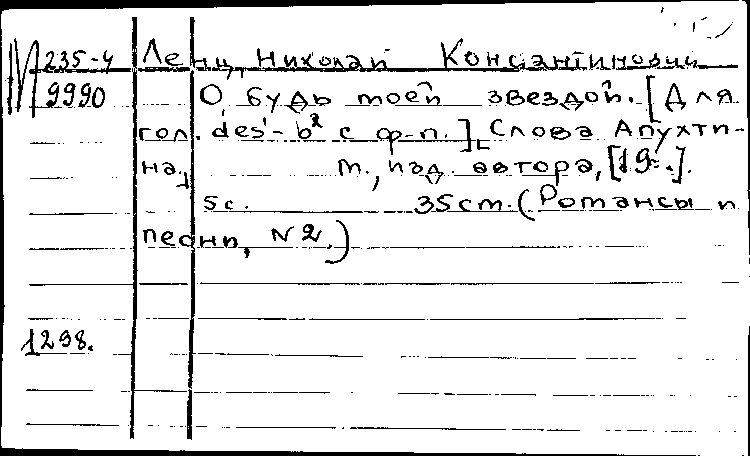 М 235-4 Ленц, Николай Константинович
9990 О будь моей звездой. [Для
гол. des¹-b² с ф-п.], Слова Апухти-
на,
м., изд. автора, [19 .].
5с. 35см. (Романсы и
песни, N2.)
1298.